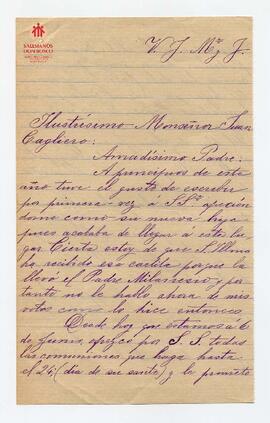 SALESIANOS
DON BOSCO
V. J. Mª J.
Ilustrísimo Monseñor Juan
Cagliero:
Amadísimo Padre:
A principios de este
año tuve el gusto de escribir
por primera vez á S. Sª
dome como su nueva hija
pues acababa de llegar á este lu
gar. Cierta estoy de que S. Illma
ha recibido esa cartita porque la
llevó el Padre Milanesio y por
tanto no le hablo ahora de mis
votos como lo hice entonces.
Desde hoy que estamos á 6
de Junio, ofrezco por S. S. todas
las comuniones que haga hasta
el 24, (dia de su santo) y le prometo